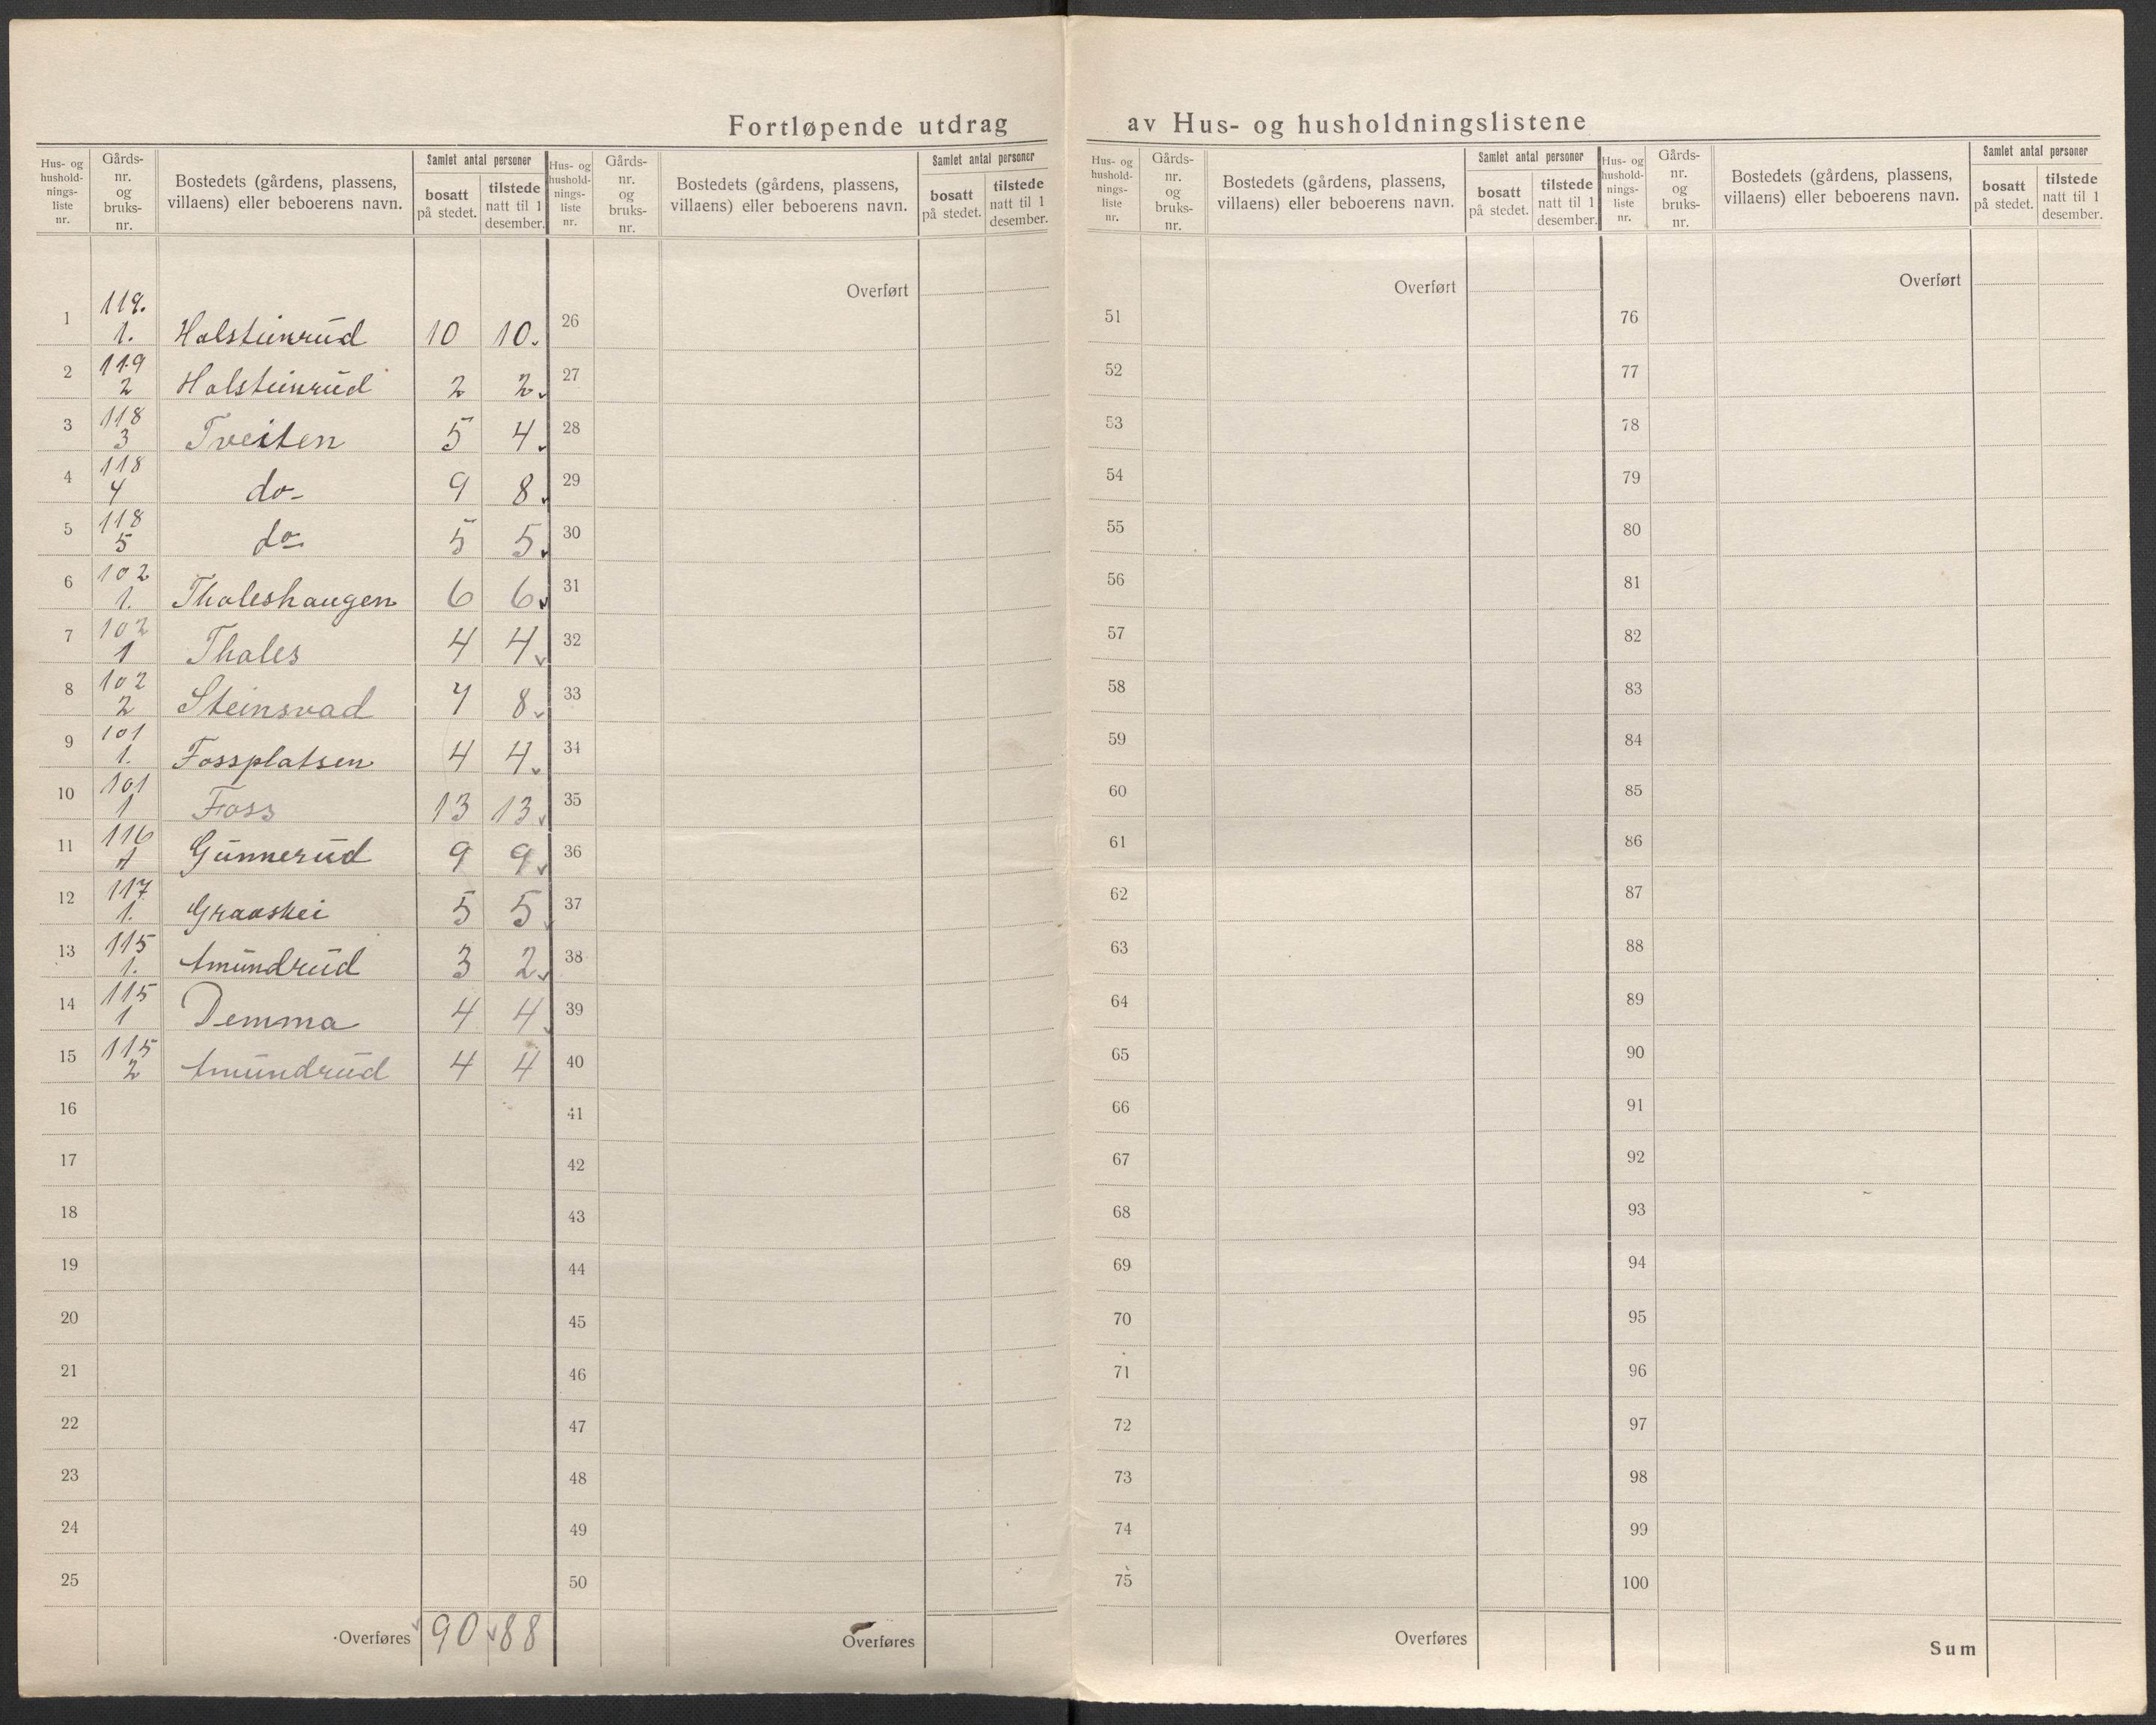 Fortløpende utdrag av Hus- og husholdningslistene
Hus- og hushold-nings-liste nr. | Gårds-nr. og bruks-nr. | Bostedets (gårdens, plassens, villaens) eller beboerens navn. | Samlet antal personer | bosatt på stedet. | tilstede natt til 1 desember.
Hus- og hushold-nings-liste nr. | Gårds-nr. og bruks-nr. | Bostedets (gårdens, plassens, villaens) eller beboerens navn. | Samlet antal personer | bosatt på stedet. | tilstede natt til 1 desember.
Hus- og hushold-nings-liste nr. | Gårds-nr. og bruks-nr. | Bostedets (gårdens, plassens, villaens) eller beboerens navn. | Samlet antal personer | bosatt på stedet. | tilstede natt til 1 desember.
Hus- og hushold-nings-liste nr. | Gårds-nr. og bruks-nr. | Bostedets (gårdens, plassens, villaens) eller beboerens navn. | Samlet antal personer | bosatt på stedet. | tilstede natt til 1 desember.
1 119. 1. Holsteinrud 10 10.
2 119 2 Holsteinrud 2 2.
3 118 3 Tveiten 5 4.
4 118 4 do- 9 8.
5 118 5 do- 5 5.
6 102 1. Tholeshaugen 6 6.
7 102 1 Tholes 4 4
8 102 2 Steinsvad 7 8
9 101 1. Fossplatsen 4 4.
10 101 1 Foss 13 13
11 116 1 Gunnerud 9 9
12 117 1. Graaskei 5 5
13 115 1. Amundrud 3 2
14 115 1 Demma 4 4
15 115 2 Amundrud 4 4
16
17
18
19
20
21
22
23
24
25
Overføres 90 88
Overført
26
27
28
29
30
31
32
33
34
35
36
37
38
39
40
41
42
43
44
45
46
47
48
49
50
Overføres
Overført
51
52
53
54
55
56
57
58
59
60
61
62
63
64
65
66
67
68
69
70
71
72
73
74
75
Overføres
Overført
76
77
78
79
80
81
82
83
84
85
86
87
88
89
90
91
92
93
94
95
96
97
98
99
100
Sum